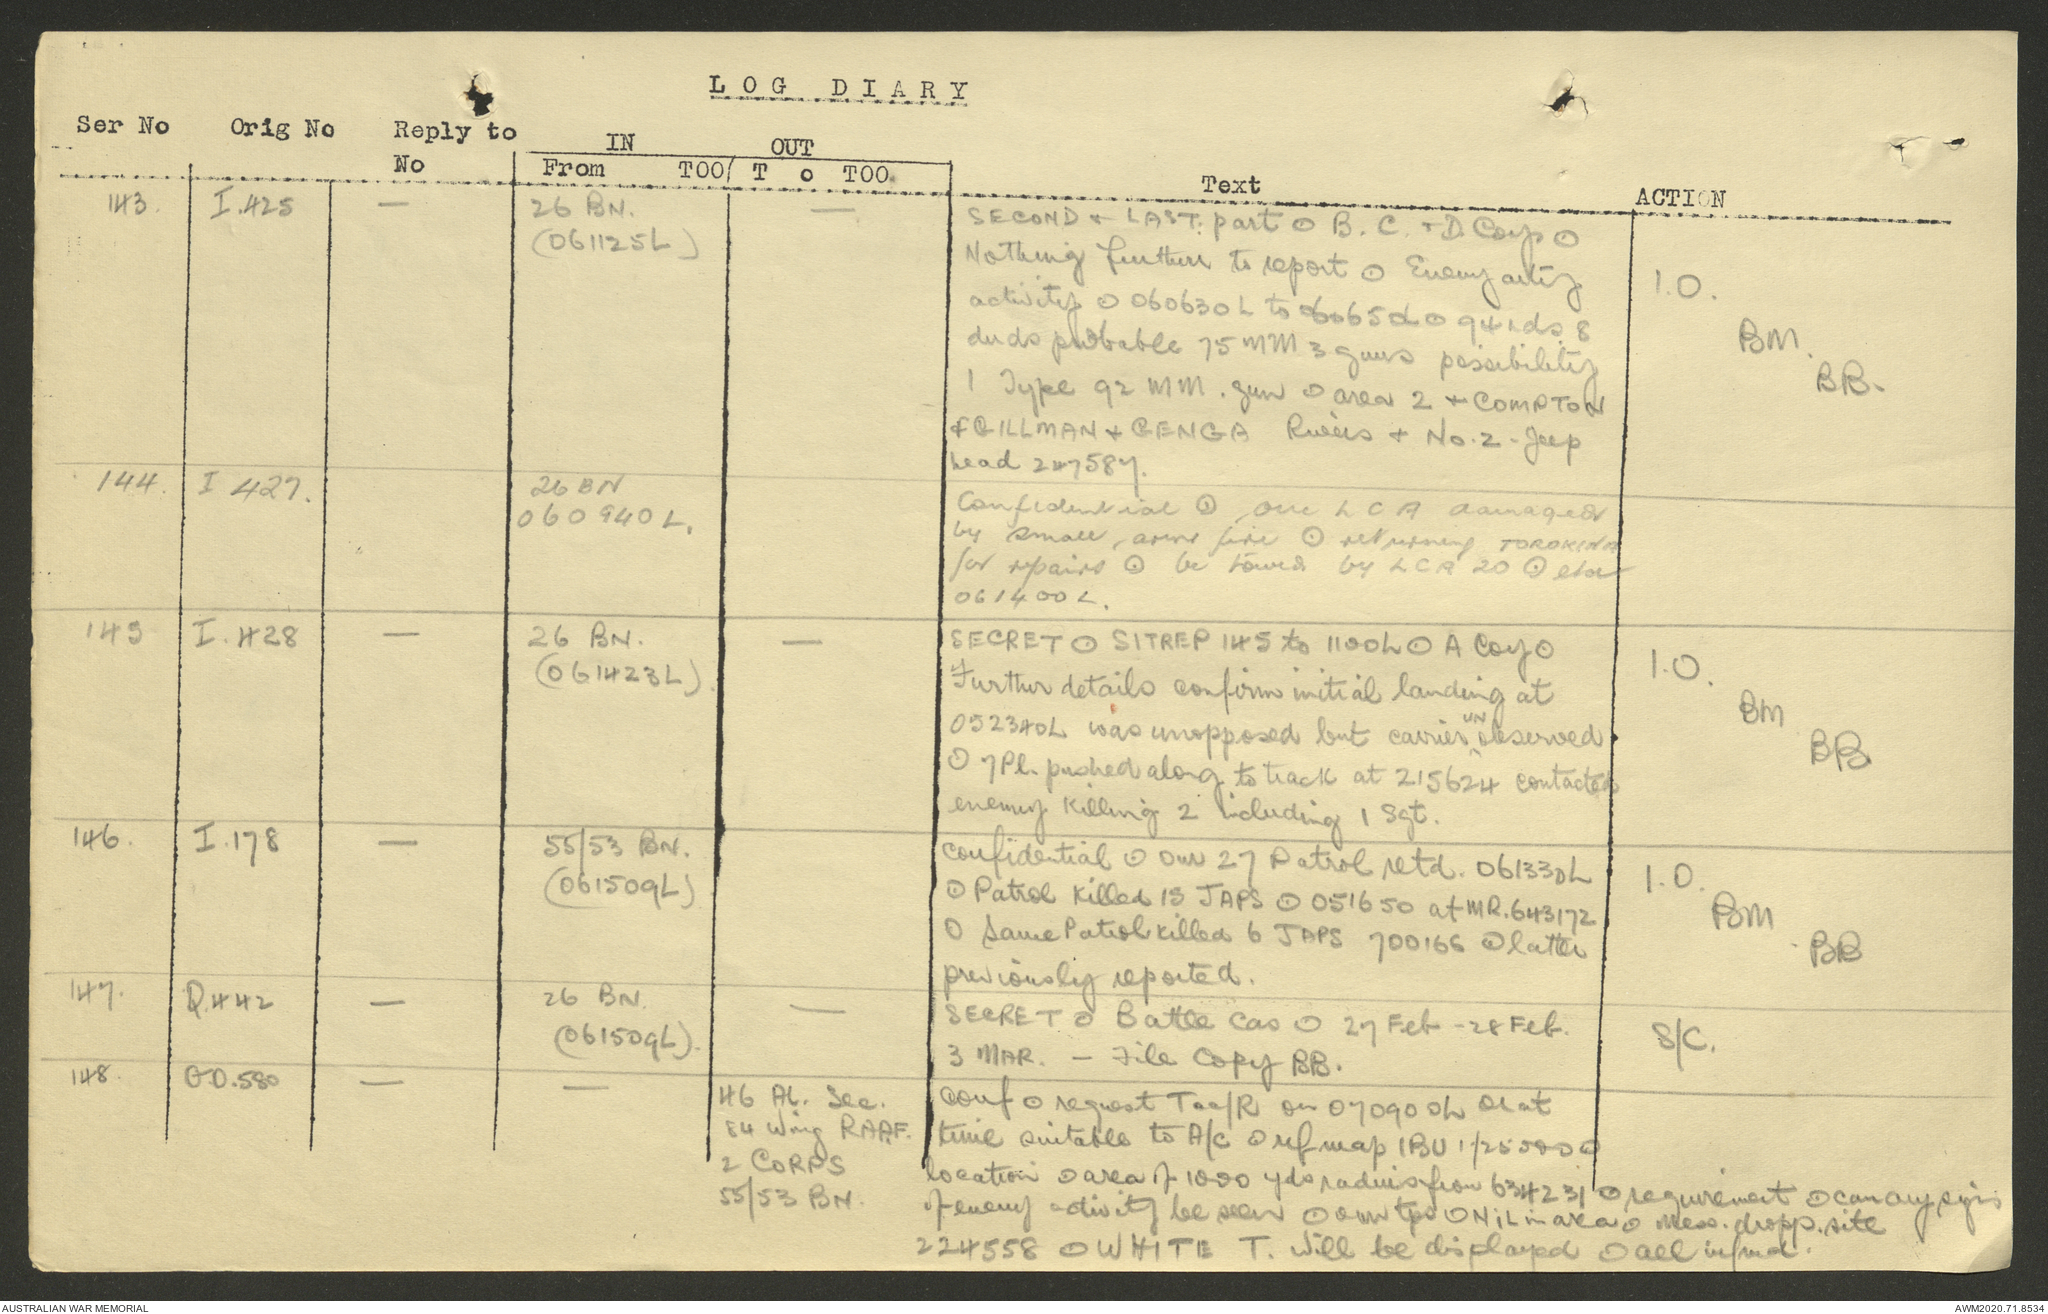 LOG DIARY
Ser No Orig No Reply to No IN From TOO/ OUT T o TOO Text ACTION
143. I.425 — 26 BN. (061125L) —
SECOND + LAST. part ⊙ B. C. + D Coys ⊙
Nothing further to report ⊙ Enemy arty
activity ⊙ 060630L to 060650L ⊙ 94 rds. 8
duds probable 75 MM 3 guns possibility
1 Type 92 MM. gun ⊙ area 2 + COMPTON
+ GILLMAN + GENGA Rivers + No. 2 - Jeep
head 247587.
I.O. BM. BB.
144. I 427. 26 BN 060940L.
Confidential ⊙ one LCA damaged
by small arms fire ⊙ returning TOROKINA
for repairs ⊙ be towed by LCA 20 ⊙ eta
061400L.
145 I.428 — 26 BN. (061423L). —
SECRET ⊙ SITREP 145 to 1100L ⊙ A Coy ⊙
Further details confirm initial landing at
052340L was unopposed but carrier UNobserved
⊙ 7 Pl. pushed along to track at 215624 contacted
enemy killing 2 including 1 Sgt.
I.O. BM BB.
146. I.178 — 55/53 BN. (061509L)
Confidential ⊙ Our 27 Patrol retd. 061330L
⊙ Patrol killed 15 JAPS ⊙ 051650 at MR. 643172
⊙ Same Patrol killed 6 JAPS 700166 ⊙ latter
previously reported.
I.O. BM BB
147. Q.442 — 26 BN. (061509L). —
SECRET ⊙ Battle Cas ⊙ 27 Feb - 28 Feb.
3 MAR. — File Copy BB.
S/C.
148. O.580 — —
46 AL. Sec.
84 Wing RAAF.
2 CORPS
55/53 BN.
Conf ⊙ request Tac/R on 070900L or at
time suitable to A/C ⊙ ref map IBU 1/25000 ⊙
location ⊙ area of 1000 yds radius from 634231 ⊙ requirement ⊙ can any signs
of enemy activity be seen ⊙ own tps ⊙ NIL in area ⊙ Mess. dropp. site
224558 ⊙ WHITE T. will be displayed ⊙ all infmd.
AUSTRALIAN WAR MEMORIAL
AWM2020.71.8534